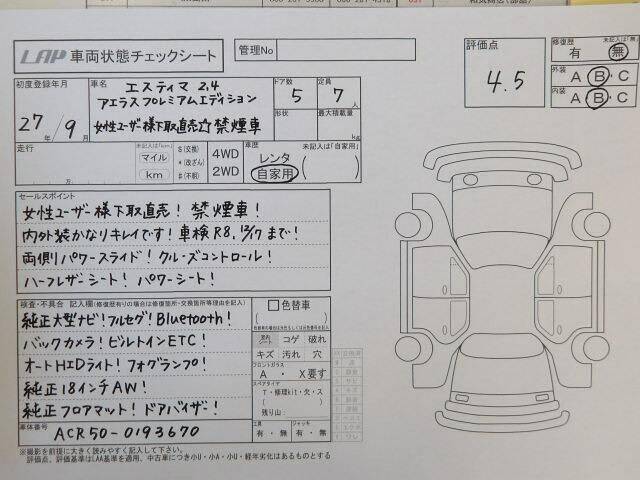 LAP 車両状態チェックシート
管理No
評価点
4.5
修復歴
未記入は「無」
有 無
外装 A・B・C
内装 A・B・C
初度登録年月
27年/9月
車名
エスティマ 2.4
アエラスプレミアムエディション
女性ユーザー様下取直売☆禁煙車
ドア数
5
定員
7人
形状
最大積載量
kg
走行
万
未記入は「km」
マイル
km
S(交換)
*(改ざん)
#(不明)
4WD
2WD
車歴
未記入は「自家用」
レンタ
自家用
セールスポイント
女性ユーザー様下取直売!禁煙車!
内外装かなりキレイです!車検R8,12/17まで!
両側パワースライド!クルーズコントロール!
ハーフレザーシート!パワーシート!
検査・不具合 記入欄(修復歴有りの場合は修復箇所・交換箇所等理由を記入)
純正大型ナビ!フルセグ!Bluetooth!
バックカメラ!ビルトインETC!
オートHIDライト!フォグランプ!
純正18インチAW!
純正フロアマット!ドアバイザー!
色替車
コゲ 破れ
キズ 汚れ 穴
フロントガラス
A ・ X要す
スペアタイヤ
T・修理kit・欠・ス
残り山:
工具
有・無
ジャッキ
有・無
車体番号
ACR50-0193670
※撮影を前提に大きく読みやすく記入して下さい。
評価点、評価基準はLAA基準を適用、中古車につき小U・小A・小U・経年劣化はあるものとする